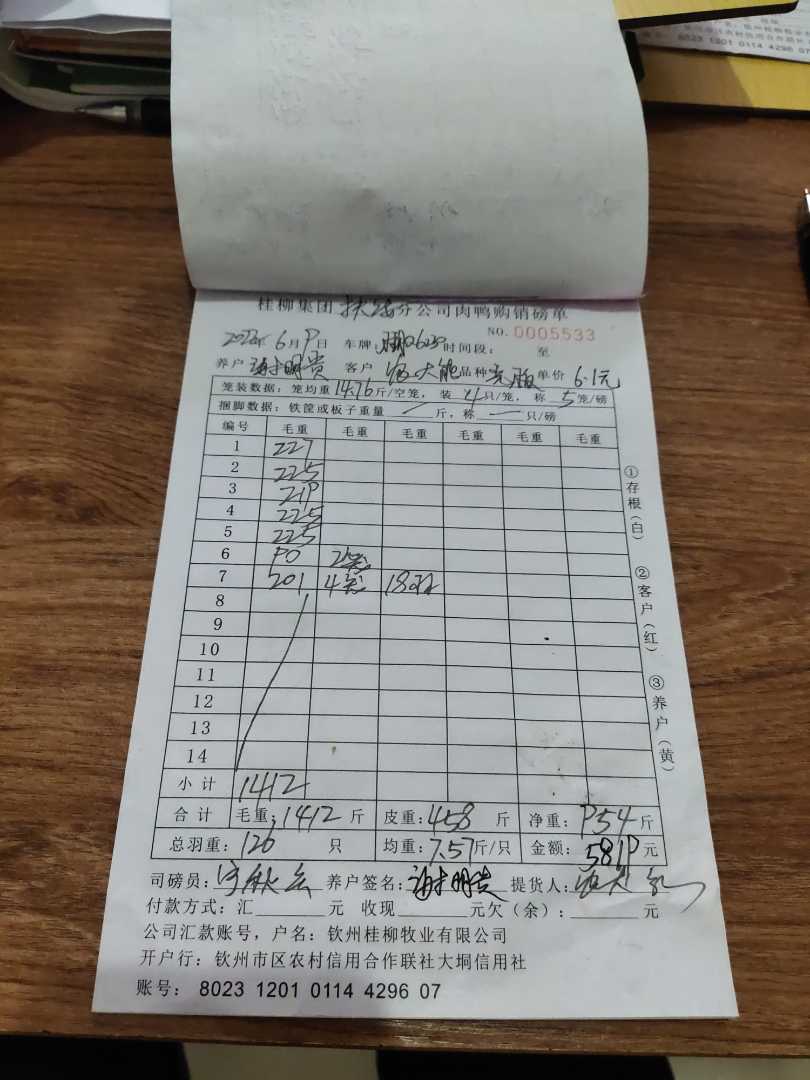 8023 1201 0114 4296 07
桂柳集团 扶绥分公司肉鸭购销磅单
NO. 0005533
2022年 6月 9日 车牌: 时间段: 至
养户 谢明贵 客户 品种 单价 6.1元
笼装数据: 笼均重 14.76 斤/空笼, 装 4 只/笼, 称 5 笼/磅
捆脚数据: 铁筐或板子重量 — 斤, 称 — 只/磅
编号 毛重 毛重 毛重 毛重 毛重 毛重
1 227
2 225
3 219
4 225
5 225
6 90 2笼
7 201 4笼 18只
8
9
10
11
12
13
14
小计 1412
合计 毛重: 1412 斤 皮重: 458 斤 净重: 954 斤
总羽重: 126 只 均重: 7.57 斤/只 金额: 5819 元
司磅员: 养户签名: 谢明贵 提货人:
付款方式: 汇 元 收现 元欠(余): 元
公司汇款账号, 户名: 钦州桂柳牧业有限公司
开户行: 钦州市区农村信用合作联社大垌信用社
账号: 8023 1201 0114 4296 07
①存根(白)
②客户(红)
③养户(黄)